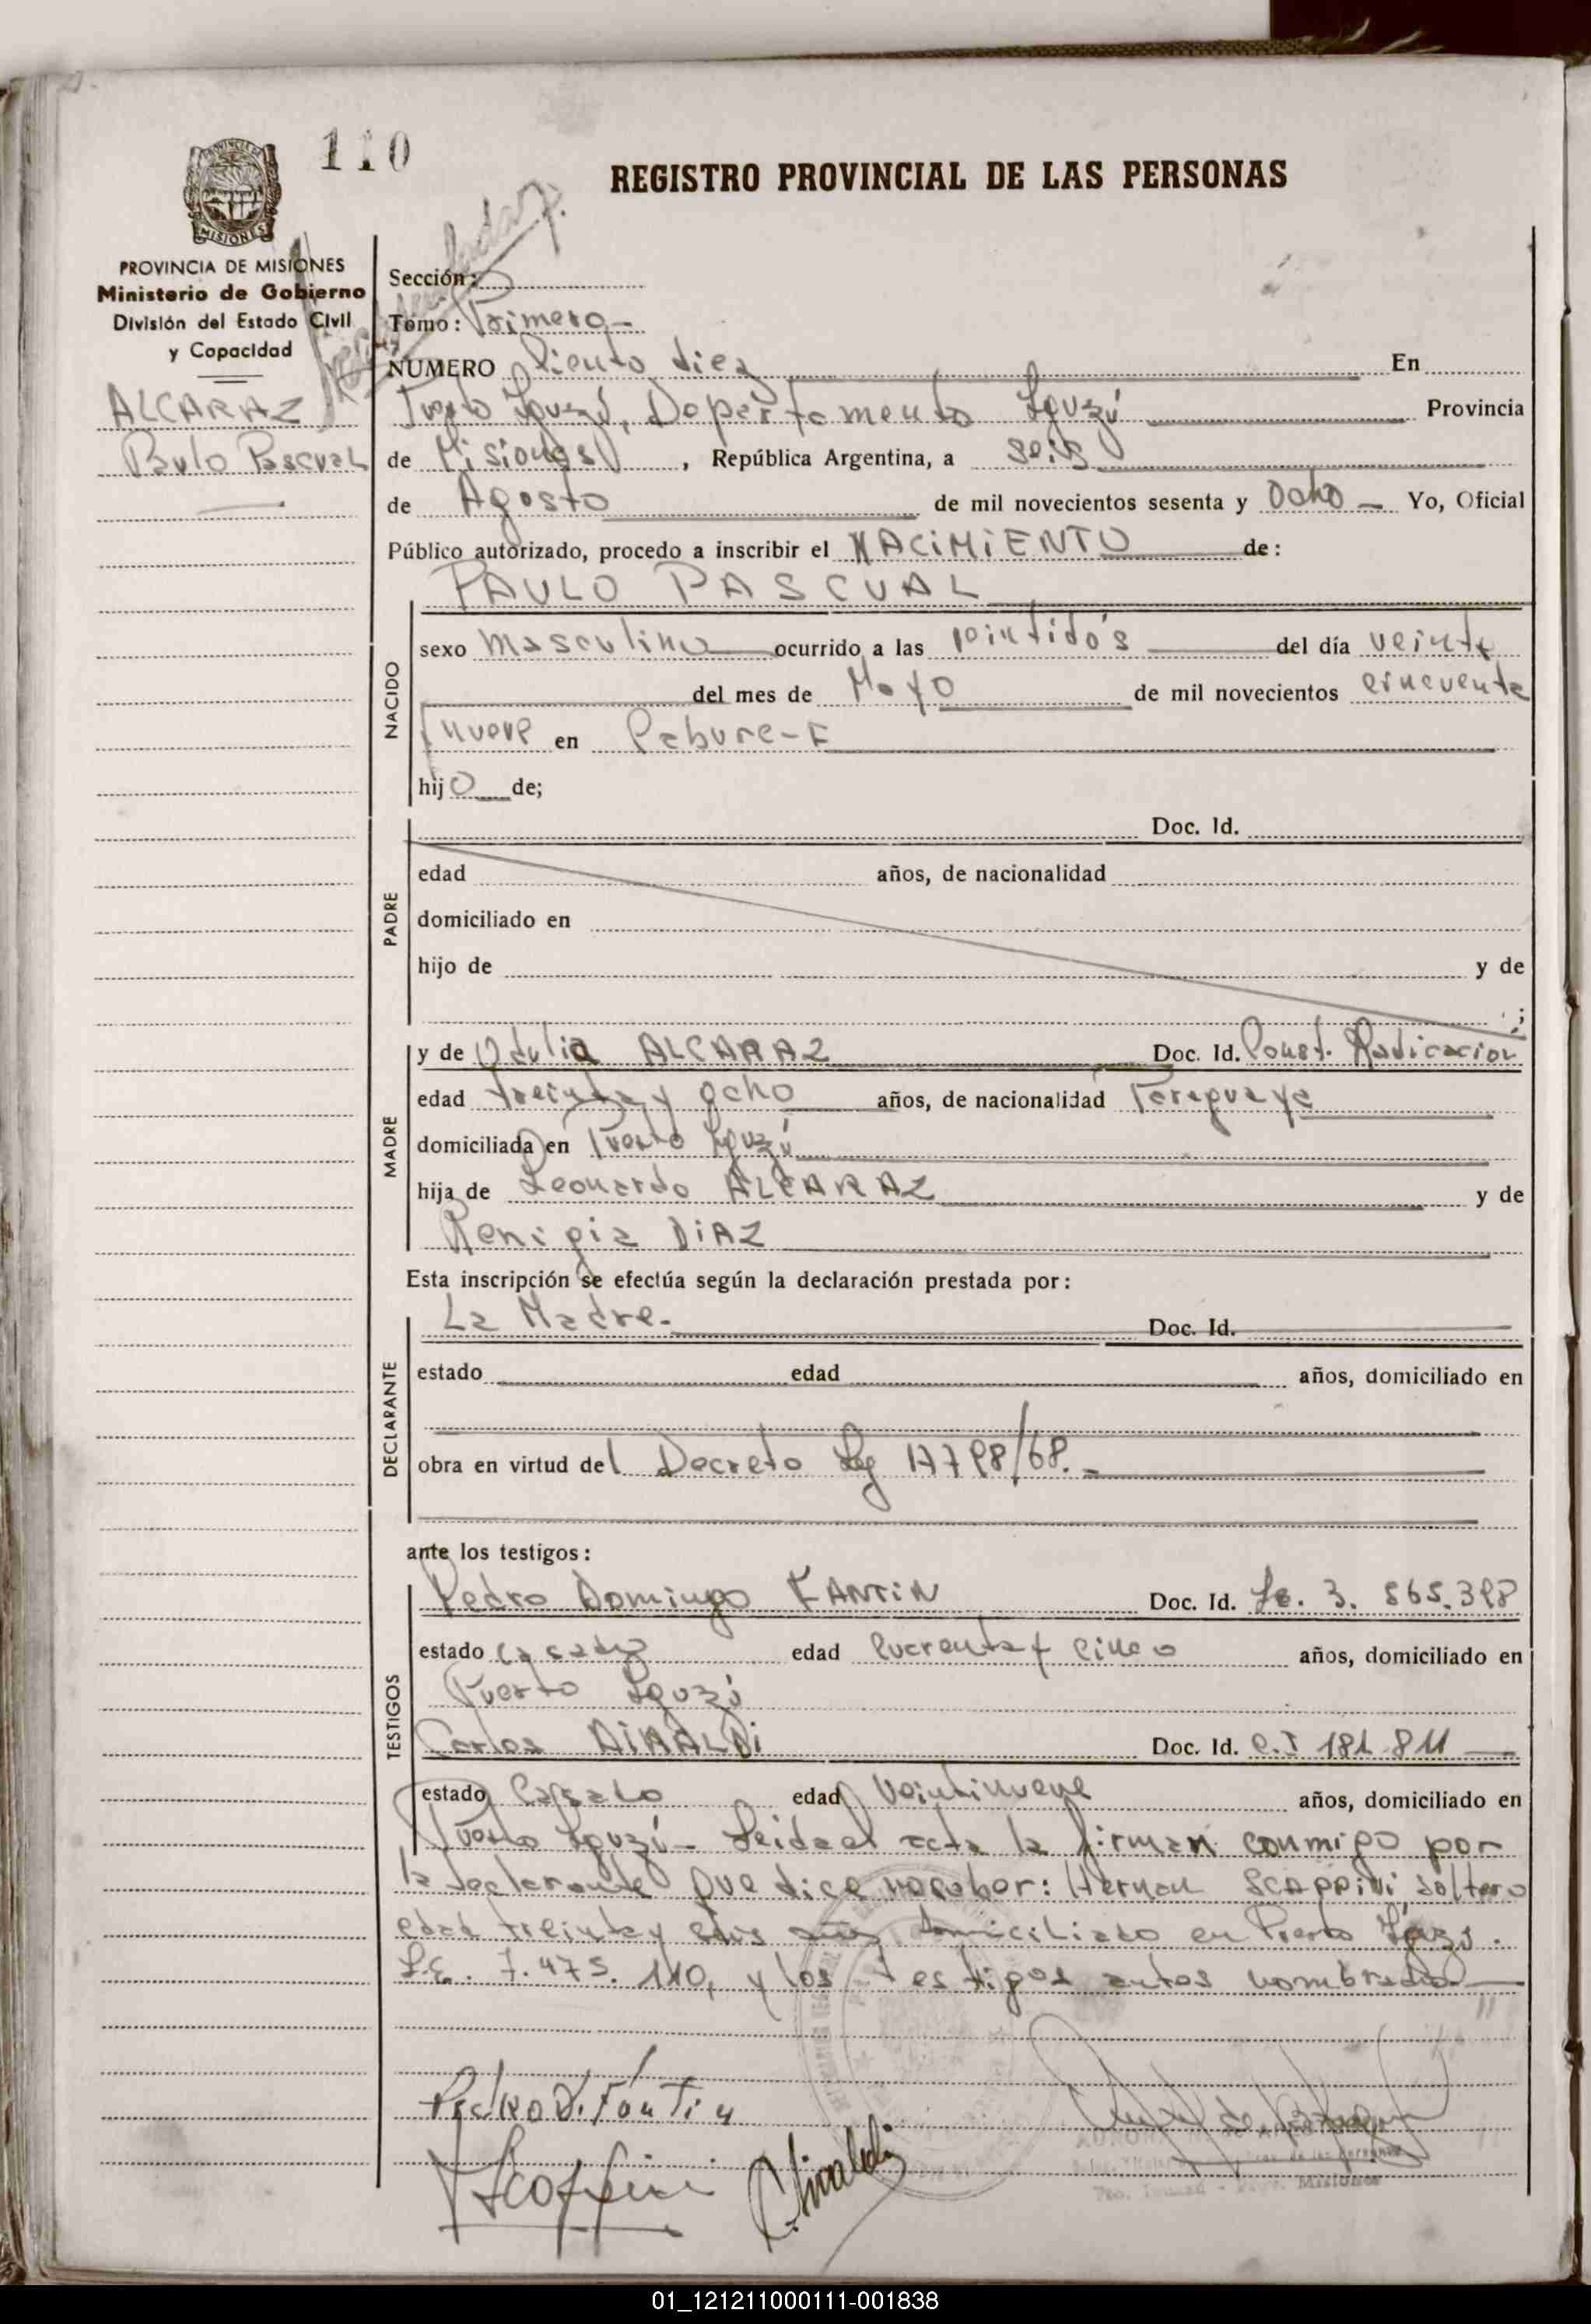 110
REGISTRO PROVINCIAL DE LAS PERSONAS
MISIONES
PROVINCIA DE MISIONES
Ministerio de Gobierno
División del Estado Civil
y Capacidad
ALCARAZ
Paulo Pascual
Sección:
Tomo: Primero-
NUMERO Ciento diez En
Puerto Iguazú, Departamento Iguazú Provincia
de Misiones, República Argentina, a seis
de Agosto de mil novecientos sesenta y Ocho - Yo, Oficial
Público autorizado, procedo a inscribir el NACIMIENTO de:
PAULO PASCUAL
NACIDO
sexo masculino ocurrido a las veintidós del día veinte
del mes de Mayo de mil novecientos cincuenta
y nueve en
hijo de;
PADRE
Doc. Id.
edad años, de nacionalidad
domiciliado en
hijo de y de
;
MADRE
y de Odulia ALCARAZ Doc. Id. Const. Radicacion
edad treinta y ocho años, de nacionalidad Paraguaya
domiciliada en Puerto Iguazú
hija de Leonardo ALCARAZ y de
Remigia DIAZ
Esta inscripción se efectúa según la declaración prestada por:
DECLARANTE
La Madre.- Doc. Id.
estado edad años, domiciliado en
obra en virtud del Decreto Ley 17798/68.-
ante los testigos:
TESTIGOS
Pedro Domingo FANTIN Doc. Id. Le. 3. 865.398
estado casado edad cuarenta y cinco años, domiciliado en
Puerto Iguazú
Carlos AIRALDI Doc. Id. C.I 181.811
estado Casado edad Veintinueve años, domiciliado en
Puerto Iguazú- Leida el acta la firman conmigo por
la declarante que dice no saber: Hernan SCAPPINI, soltero
edad treinta y seis años domiciliado en Puerto Iguazú.
L.E. 7.475.110, y los testigos antes nombrados
Pedro D. Fantin
Misiones
01_121211000111-001838